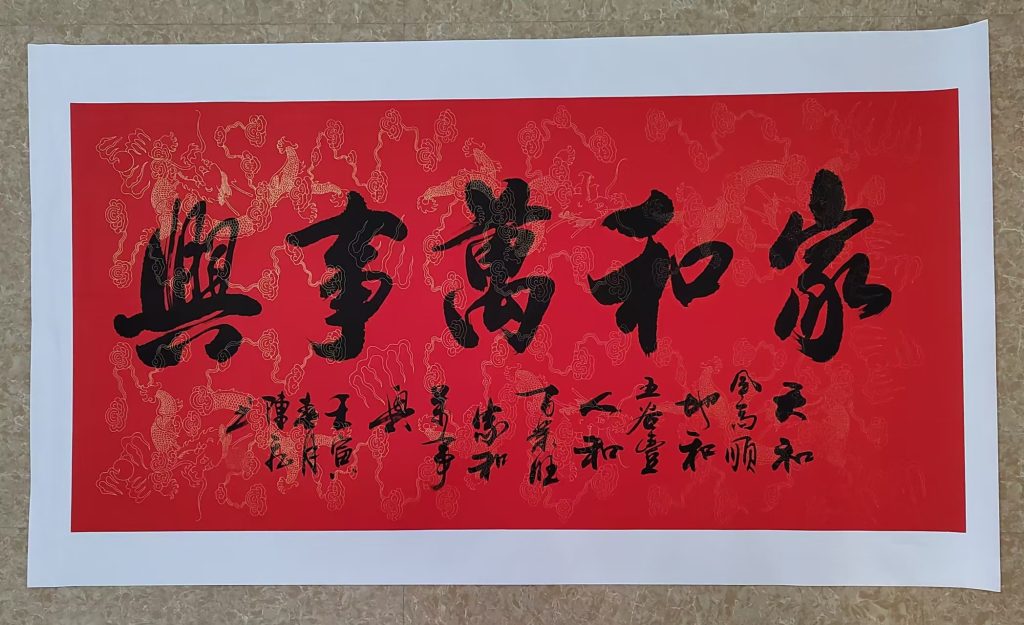 家和萬事興
天和
風雨順
地和
五谷豐
人和
百業旺
家和
萬事
興
壬寅
春月
陳
书